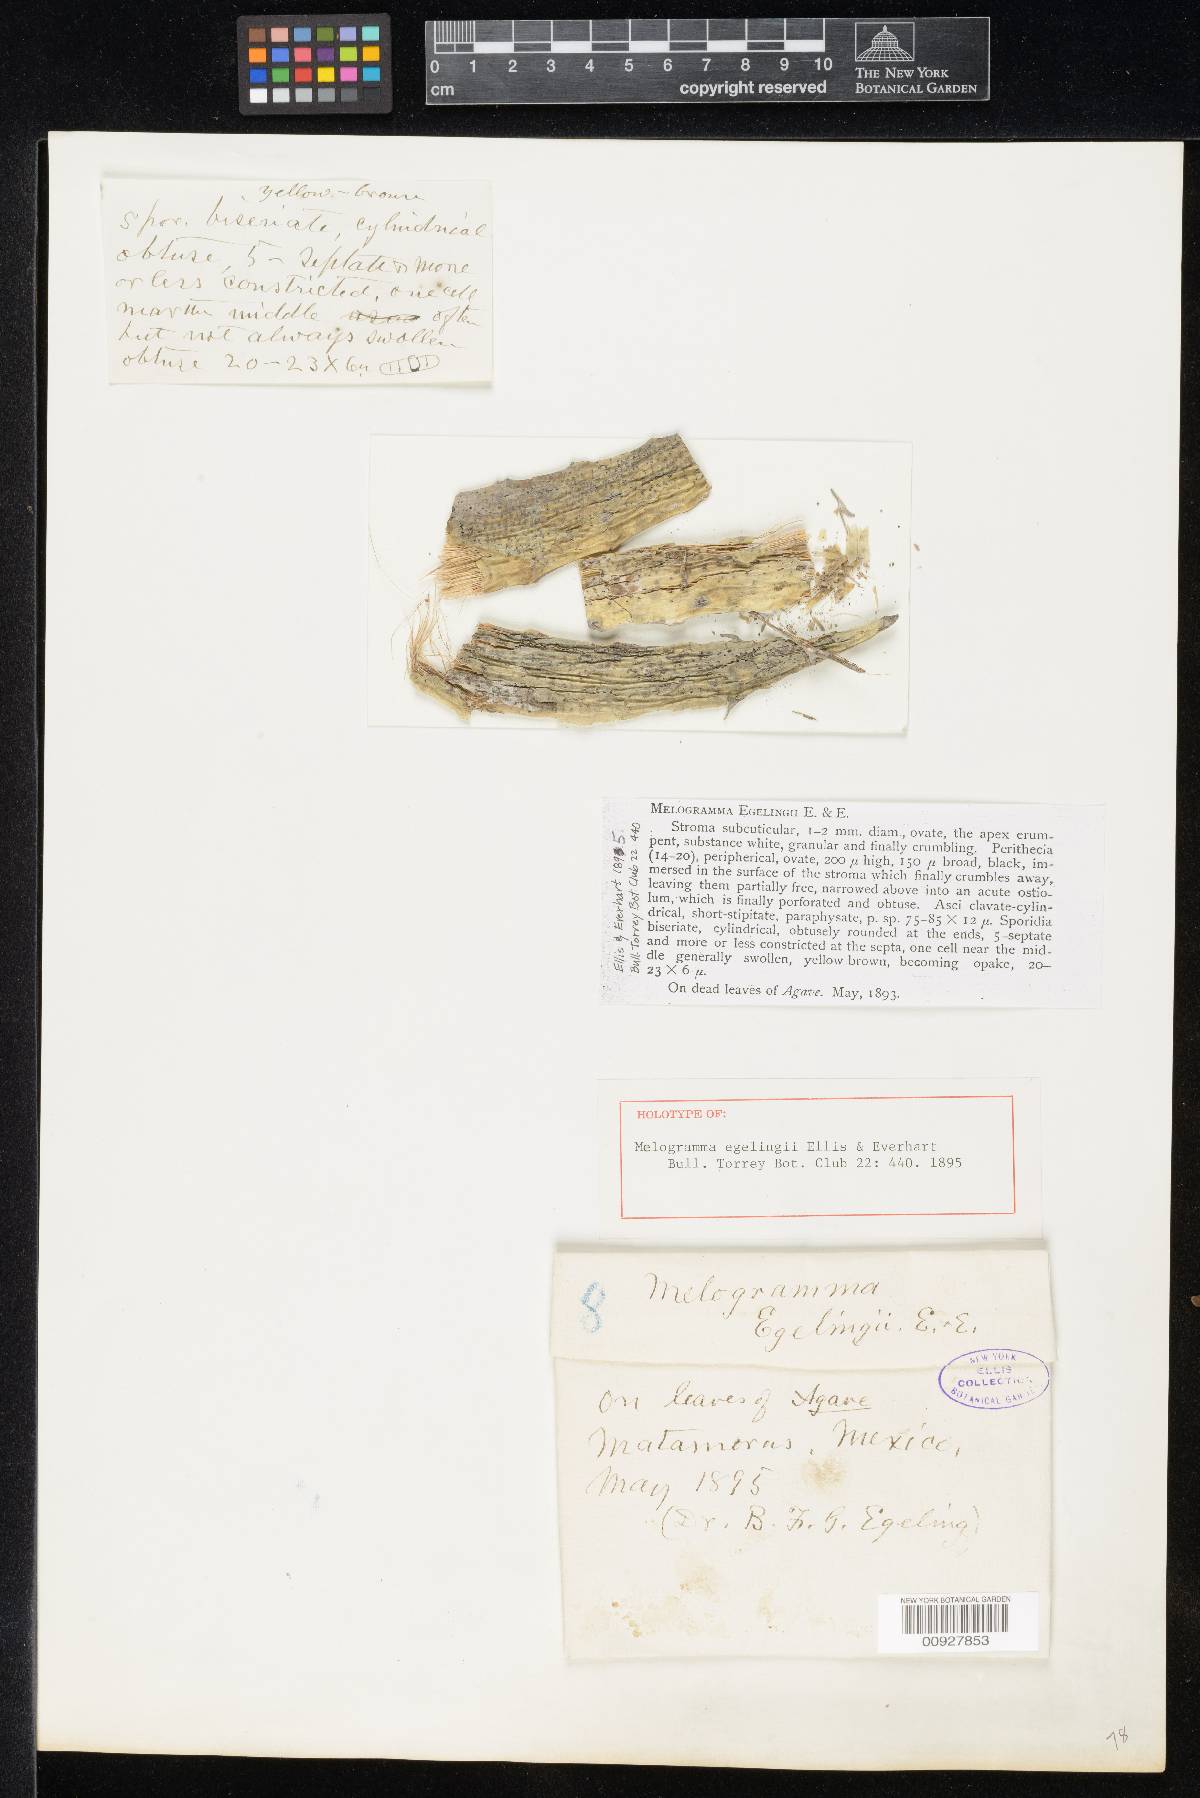 0 1 2 3 4 5 6 7 8 9 10
cm
copyright reserved
THE NEW YORK
BOTANICAL GARDEN
yellow-brown
Spor. biseriate, cylindrical
obtuse, 5-septate & more
or less constricted, one cell
near the middle often
but not always swollen
obtuse 20-23X6µ
MELOGRAMMA EGELINGII E. & E.
Stroma subcuticular, 1-2 mm. diam., ovate, the apex erum-
pent, substance white, granular and finally crumbling. Perithecia
(14-20), peripherical, ovate, 200 µ high, 150 µ broad, black, im-
mersed in the surface of the stroma which finally crumbles away,
leaving them partially free, narrowed above into an acute ostio-
lum, which is finally porforated and obtuse. Asci clavate-cylin-
drical, short-stipitate, paraphysate, p. sp. 75-85 X 12 µ. Sporidia
biseriate, cylindrical, obtusely rounded at the ends, 5-septate
and more or less constricted at the septa, one cell near the mid-
dle generally swollen, yellow brown, becoming opake, 20-
23 X 6 µ.
On dead leaves of Agave. May, 1893.
Ellis & Everhart 1895.
Bull. Torrey Bot Club 22 440
HOLOTYPE OF:
Melogramma egelingii Ellis & Everhart
Bull. Torrey Bot. Club 22: 440. 1895
8
Melogramma
Egelingii. E. & E.
NEW YORK
ELLIS
COLLECTION
BOTANICAL GARDEN
On leaves of Agave
Matamoras, Mexico,
May 1895
(Dr. B. F. G. Egeling)
NEW YORK BOTANICAL GARDEN
00927853
78